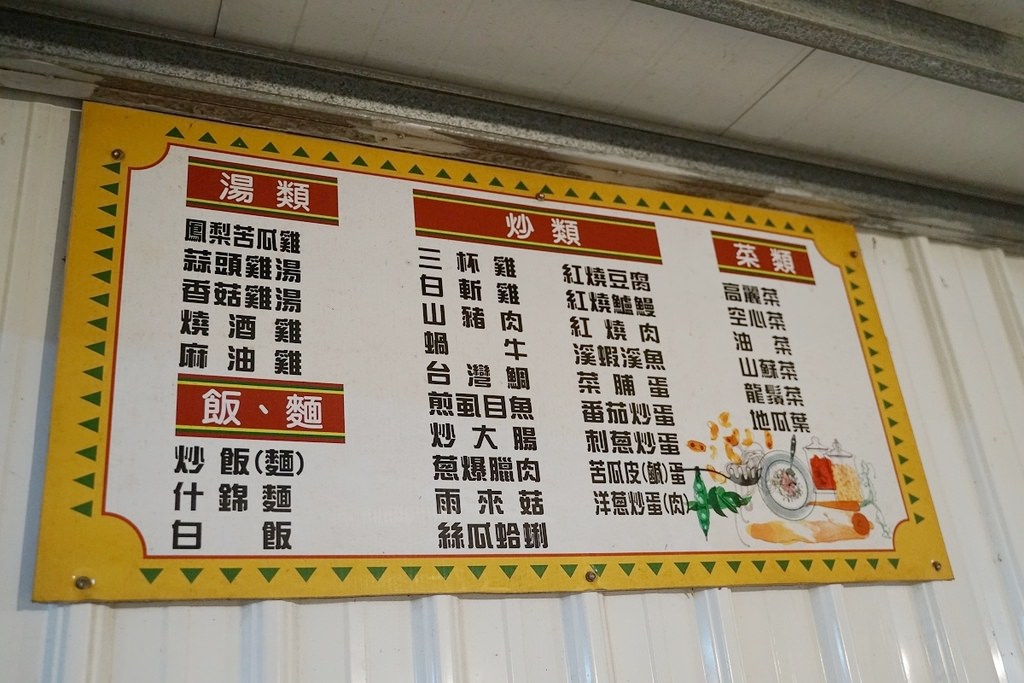 湯類
鳳梨苦瓜雞
蒜頭雞湯
香菇雞湯
燒酒雞
麻油雞
飯、麵
炒飯(麵)
什錦麵
白飯
炒類
三杯雞
白斬雞
山豬肉
蝸牛
台灣鯛
煎虱目魚
炒大腸
蔥爆臘肉
雨來菇
絲瓜蛤蜊
紅燒豆腐
紅燒鱸鰻
紅燒肉
溪蝦溪魚
菜脯蛋
番茄炒蛋
刺蔥炒蛋
苦瓜皮(鹹)蛋
洋蔥炒蛋(肉)
菜類
高麗菜
空心菜
油菜
山蘇菜
龍鬚菜
地瓜葉